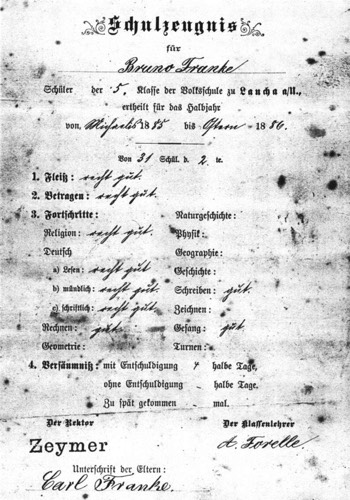 Schulzeugnis
für
Bruno Franke
Schüler der 5. Klasse der Volksschule zu Laucha a/U.,
ertheilt für das Halbjahr
von Michaelis 1885 bis Ostern 1886.
Von 31 Schül. d. 2 te.
1. Fleiß: recht gut.
2. Betragen: recht gut.
3. Fortschritte: Naturgeschichte:
Religion: recht gut. Physik:
Deutsch Geographie:
a) Lesen: recht gut Geschichte:
b) mündlich: recht gut. Schreiben: gut.
c) schriftlich: recht gut. Zeichnen:
Rechnen: gut. Gesang: gut.
Geometrie: Turnen:
4. Versäumniß: mit Entschuldigung 4 halbe Tage,
ohne Entschuldigung - halbe Tage.
Zu spät gekommen - mal.
Der Rektor Der Klassenlehrer
Zeymer A. Forelle.
Unterschrift der Eltern:
Carl Franke.